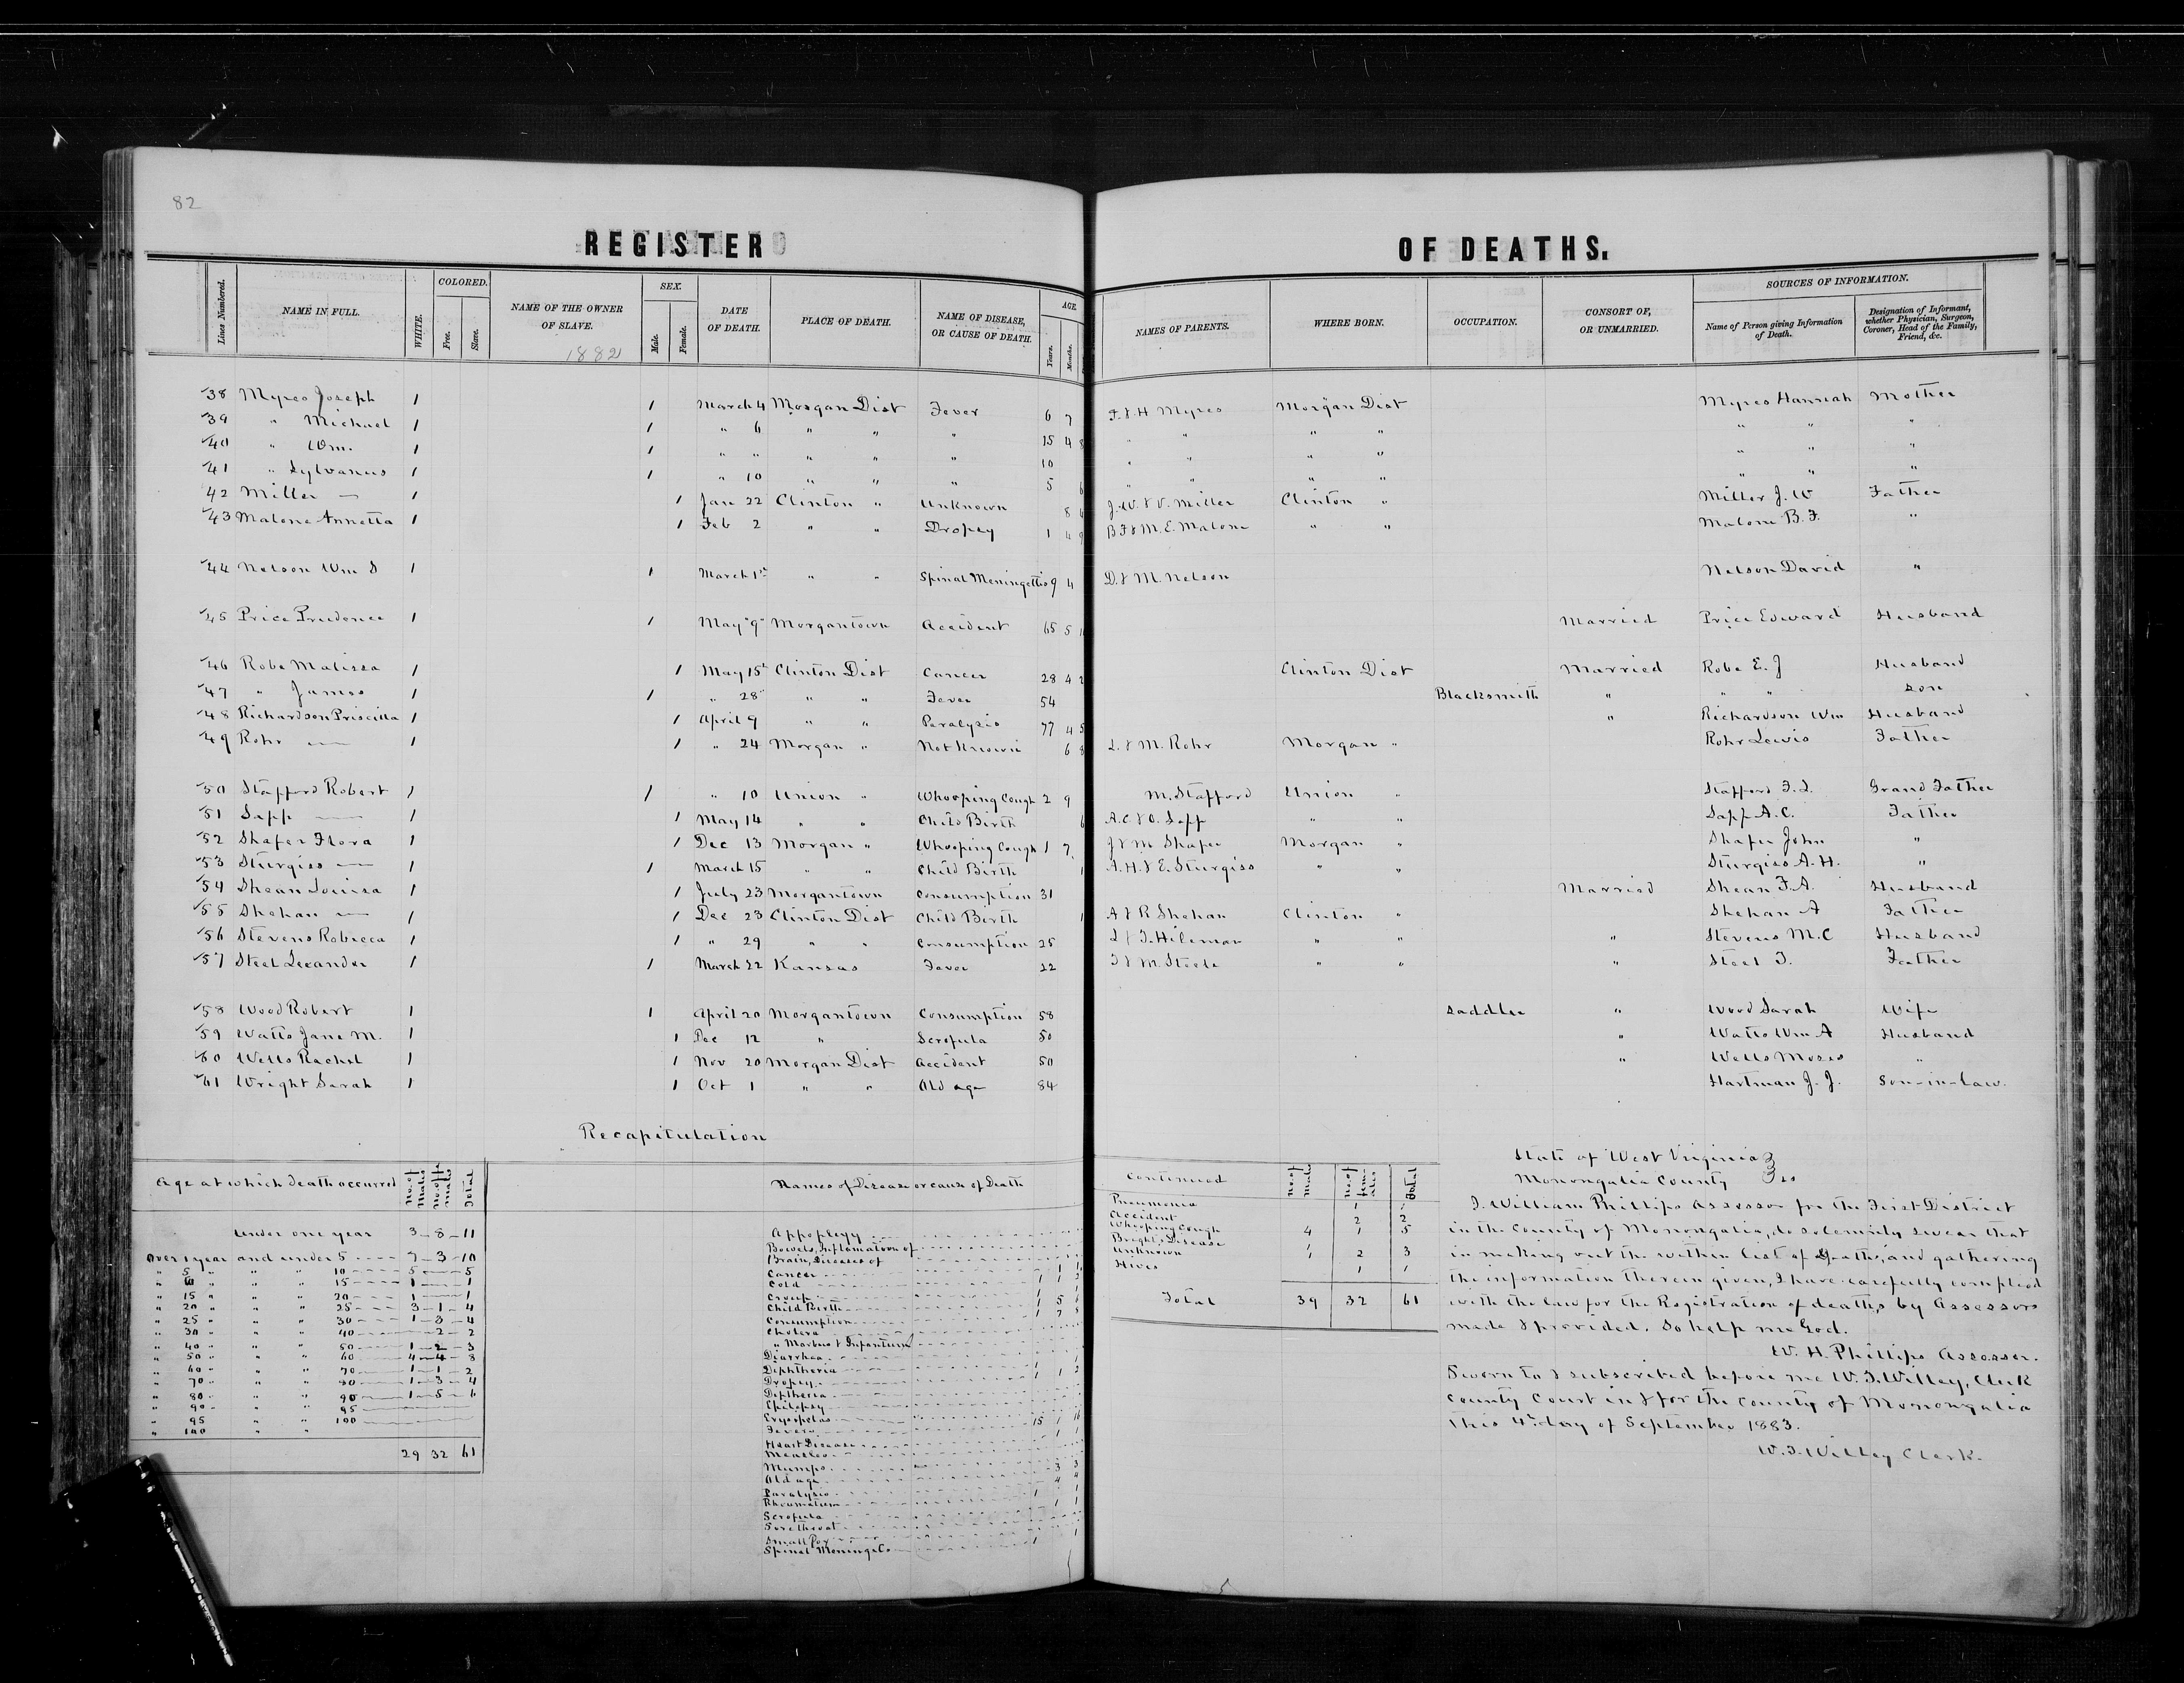 82
REGISTER OF DEATHS.
Lines Numbered. NAME IN FULL. WHITE. COLORED. Free. Slave. NAME OF THE OWNER OF SLAVE. SEX. Male. Female. DATE OF DEATH. PLACE OF DEATH. NAME OF DISEASE, OR CAUSE OF DEATH. AGE Years. Months. NAMES OF PARENTS. WHERE BORN. OCCUPATION. CONSORT OF, OR UNMARRIED. SOURCES OF INFORMATION. Name of Person giving Information of Death. Designation of Informant, whether Physician, Surgeon, Coroner, Head of the Family, Friend, &c.
1882
38 Myres Joseph 1 1 March 4 Morgan Dist Fever 6 7 F. & H Myres Morgan Dist Myres Hannah Mother
39 " Michael 1 1 " 6 " " " 15 4 8 " " " " " " "
40 " Wm. 1 1 " " " " " 10 " " " " " " "
41 " Sylvanus 1 1 " 10 " " " 5 6 " " " " " " "
42 Miller — 1 1 Jan 22 Clinton " Unknown 8 J. W. & V. Miller Clinton " Miller J. W Father
43 Malone Annetta 1 1 Feb 2 " " Dropsy 1 4 9 B F & M. E. Malone " " Malone B. F. "
44 Nelson Wm S 1 1 March 1st " " Spinal Meningettis 9 4 D. & M. Nelson Nelson David "
45 Price Prudence 1 1 May "9" Morgantown Accident 65 5 Married Price Edward Husband
46 Robe Malissa 1 1 May 15 Clinton Dist Cancer 28 4 2 Clinton Dist Married Robe E. J Husband
47 " James 1 1 " 28 " " Fever 54 Blacksmith " " " Son
48 Richardson Priscilla 1 1 April 9 " " Paralysis 77 4 5 " Richardson Wm Husband
49 Rohr — 1 1 " 24 Morgan " Not Known 6 8 L. & M. Rohr Morgan " Rohr Lewis Father
50 Stafford Robert 1 1 " 10 Union " Whooping Cough 2 9 M. Stafford Union " Stafford Grand Father
51 Sapp — 1 1 May 14 " " Child Birth 6 A. C & O. Sapp " " Sapp A. C. Father
52 Shafer Flora 1 1 Dec 13 Morgan " Whooping Cough 1 7 J & M Shafer Morgan " Shafer John "
53 Sturgiss — 1 1 March 15 " " Child Birth 1 A. H. & E. Sturgiss " " Sturgiss A. H. "
54 Shean Louisa 1 1 July 23 Morgantown Consumption 31 Married Shean F. A. Husband
55 Shehan — 1 1 Dec 23 Clinton Dist Child Birth 1 A & R Shehan Clinton " Shehan A Father
56 Stevens Rebecca 1 1 " 29 " " Consumption 25 Hileman " " " Stevens M. C Husband
57 Steel Lexander 1 1 March 22 Kansas Fever 22 J & M. Steele " " " Steel J. Father
58 Wood Robert 1 1 April 20 Morgantown Consumption 58 Saddler " Wood Sarah Wife
59 Watts Jane M. 1 1 Dec 12 " Scrofula 50 " Watts Wm A Husband
60 Wells Rachel 1 1 Nov 20 Morgan Dist Accident 50 " Wells Moses "
61 Wright Sarah 1 1 Oct 1 " " Old age 84 Hartman J. J. Son-in-law.
Recapitulation
Age at which death occurred No. of Males No. of Females Total
Under one year 3 - 8 - 11
Over 1 year and under 5 7 - 3 - 10
" 5 " " " 10 5 — 5
" 10 " " " 15 1 — 1
" 15 " " " 20 1 — 1
" 20 " " " 25 3 - 1 - 4
" 25 " " " 30 1 - 3 - 4
" 30 " " " 40 — 2 - 2
" 40 " " " 50 1 - 2 - 3
" 50 " " " 60 4 - 4 - 8
" 60 " " " 70 1 - 1 - 2
" 70 " " " 80 1 - 3 - 4
" 80 " " " 90 1 - 5 - 6
" 90 " " " 95
" 95 " " " 100
" 100 " "
29 32 61
Names of Disease or cause of Death
Appoplexy
Bowels, Inflamation of
Brain, Diseases of
Cancer
Cold
Croup
Child Birth
Consumption
Cholera
" Morbus & Infantum
Diarrhea
Diphtheria
Dropsy
Diptheria
Epilepsy
Erysipelas
Fevers 15 1 16
Heart Disease
Measles
Mumps
Old age
Paralysis
Rheumatism
Scrofula
Sore throat
Small Pox
Spinal Meningetis
Continued No. of Males No. of females Total
Pneumonia 1
Accident 2 2
Whooping Cough 4 1 5
Bright's Disease
Unknown 1 2 3
Hives 1 1
Total 39 32 61
State of West Virginia
Monongalia County ss
I. William Phillips Assessor for the First District
in the County of Monongalia, do solemnly swear that
in making out the within list of deaths, and gathering
the information therein given, I have carefully complied
with the law for the Registration of deaths by Assessors
made & provided. So help me God.
W. H. Phillips Assessor.
Sworn to & subscribed before me W. T. Willey, Clerk
County Court in & for the County of Monongalia
this 4th day of September 1883.
W. T. Willey Clerk.